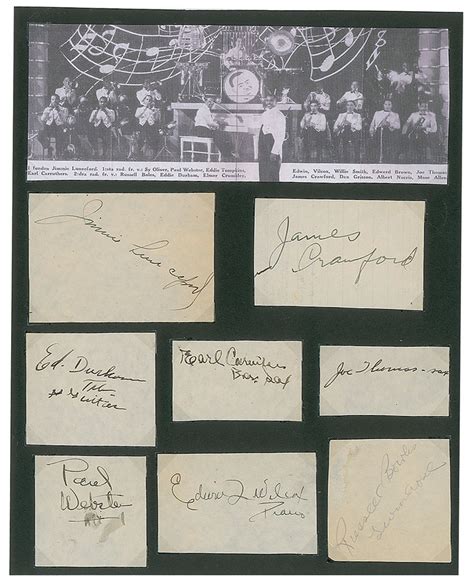 I fonden Jimmie Lunceford. 1:sta rad. fr. v.: Sy Oliver, Paul Webster, Eddie Tompkins,
Earl Carruthers. 2:dra rad. fr. v.: Russell Boles, Eddie Durham, Elmer Crumbley,
Edwin, Wilcox, Willie Smith, Edward Brown, Joe Thomas
James Crawford, Dan Grissom, Albert Norris, Mose Allen
Jimmie Lunceford
James
Crawford
Ed. Durham
Guitar
Earl Carruthers
Bar. sax
Joe Thomas - sax
Paul
Webster
Edwin Wilcox
Piano
Russell Bowles